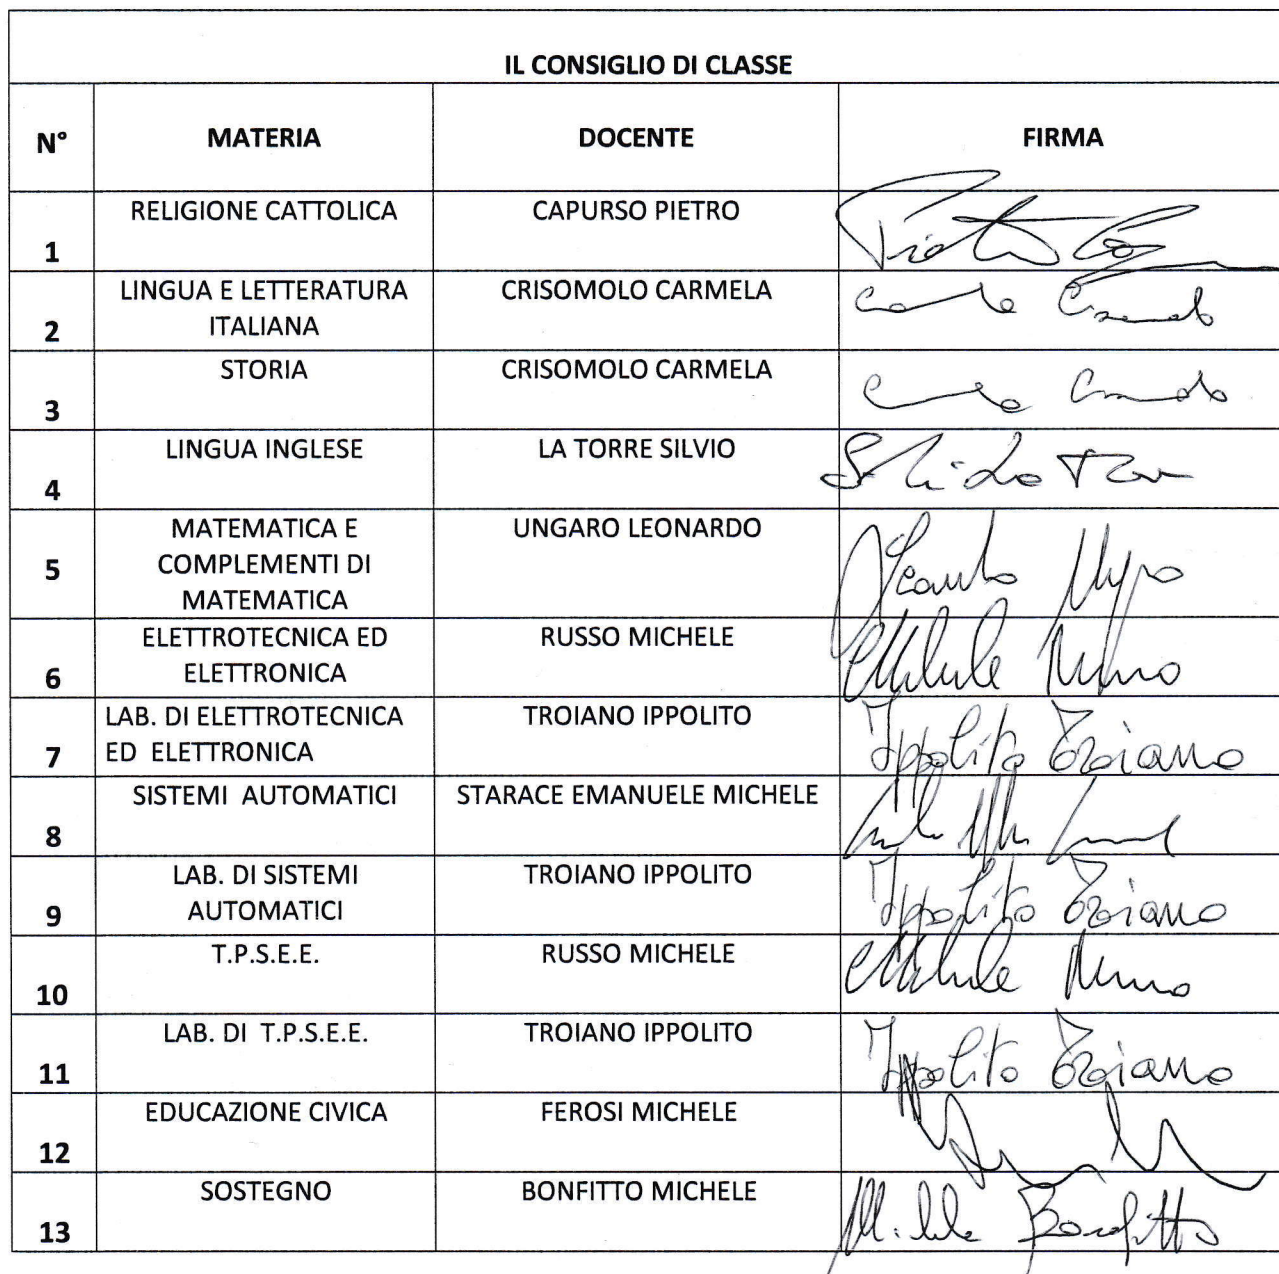 IL CONSIGLIO DI CLASSE
N° MATERIA DOCENTE FIRMA
1 RELIGIONE CATTOLICA CAPURSO PIETRO
2 LINGUA E LETTERATURA ITALIANA CRISOMOLO CARMELA
3 STORIA CRISOMOLO CARMELA
4 LINGUA INGLESE LA TORRE SILVIO
5 MATEMATICA E COMPLEMENTI DI MATEMATICA UNGARO LEONARDO
6 ELETTROTECNICA ED ELETTRONICA RUSSO MICHELE
7 LAB. DI ELETTROTECNICA ED ELETTRONICA TROIANO IPPOLITO Ippolito Troiano
8 SISTEMI AUTOMATICI STARACE EMANUELE MICHELE
9 LAB. DI SISTEMI AUTOMATICI TROIANO IPPOLITO Ippolito Troiano
10 T.P.S.E.E. RUSSO MICHELE
11 LAB. DI T.P.S.E.E. TROIANO IPPOLITO Ippolito Troiano
12 EDUCAZIONE CIVICA FEROSI MICHELE
13 SOSTEGNO BONFITTO MICHELE Michele Bonfitto